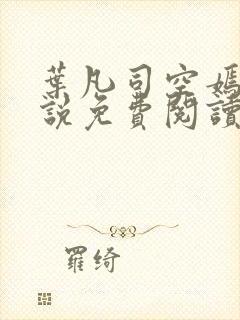 葉凡司空嫣
說免費閱讀
羅綺